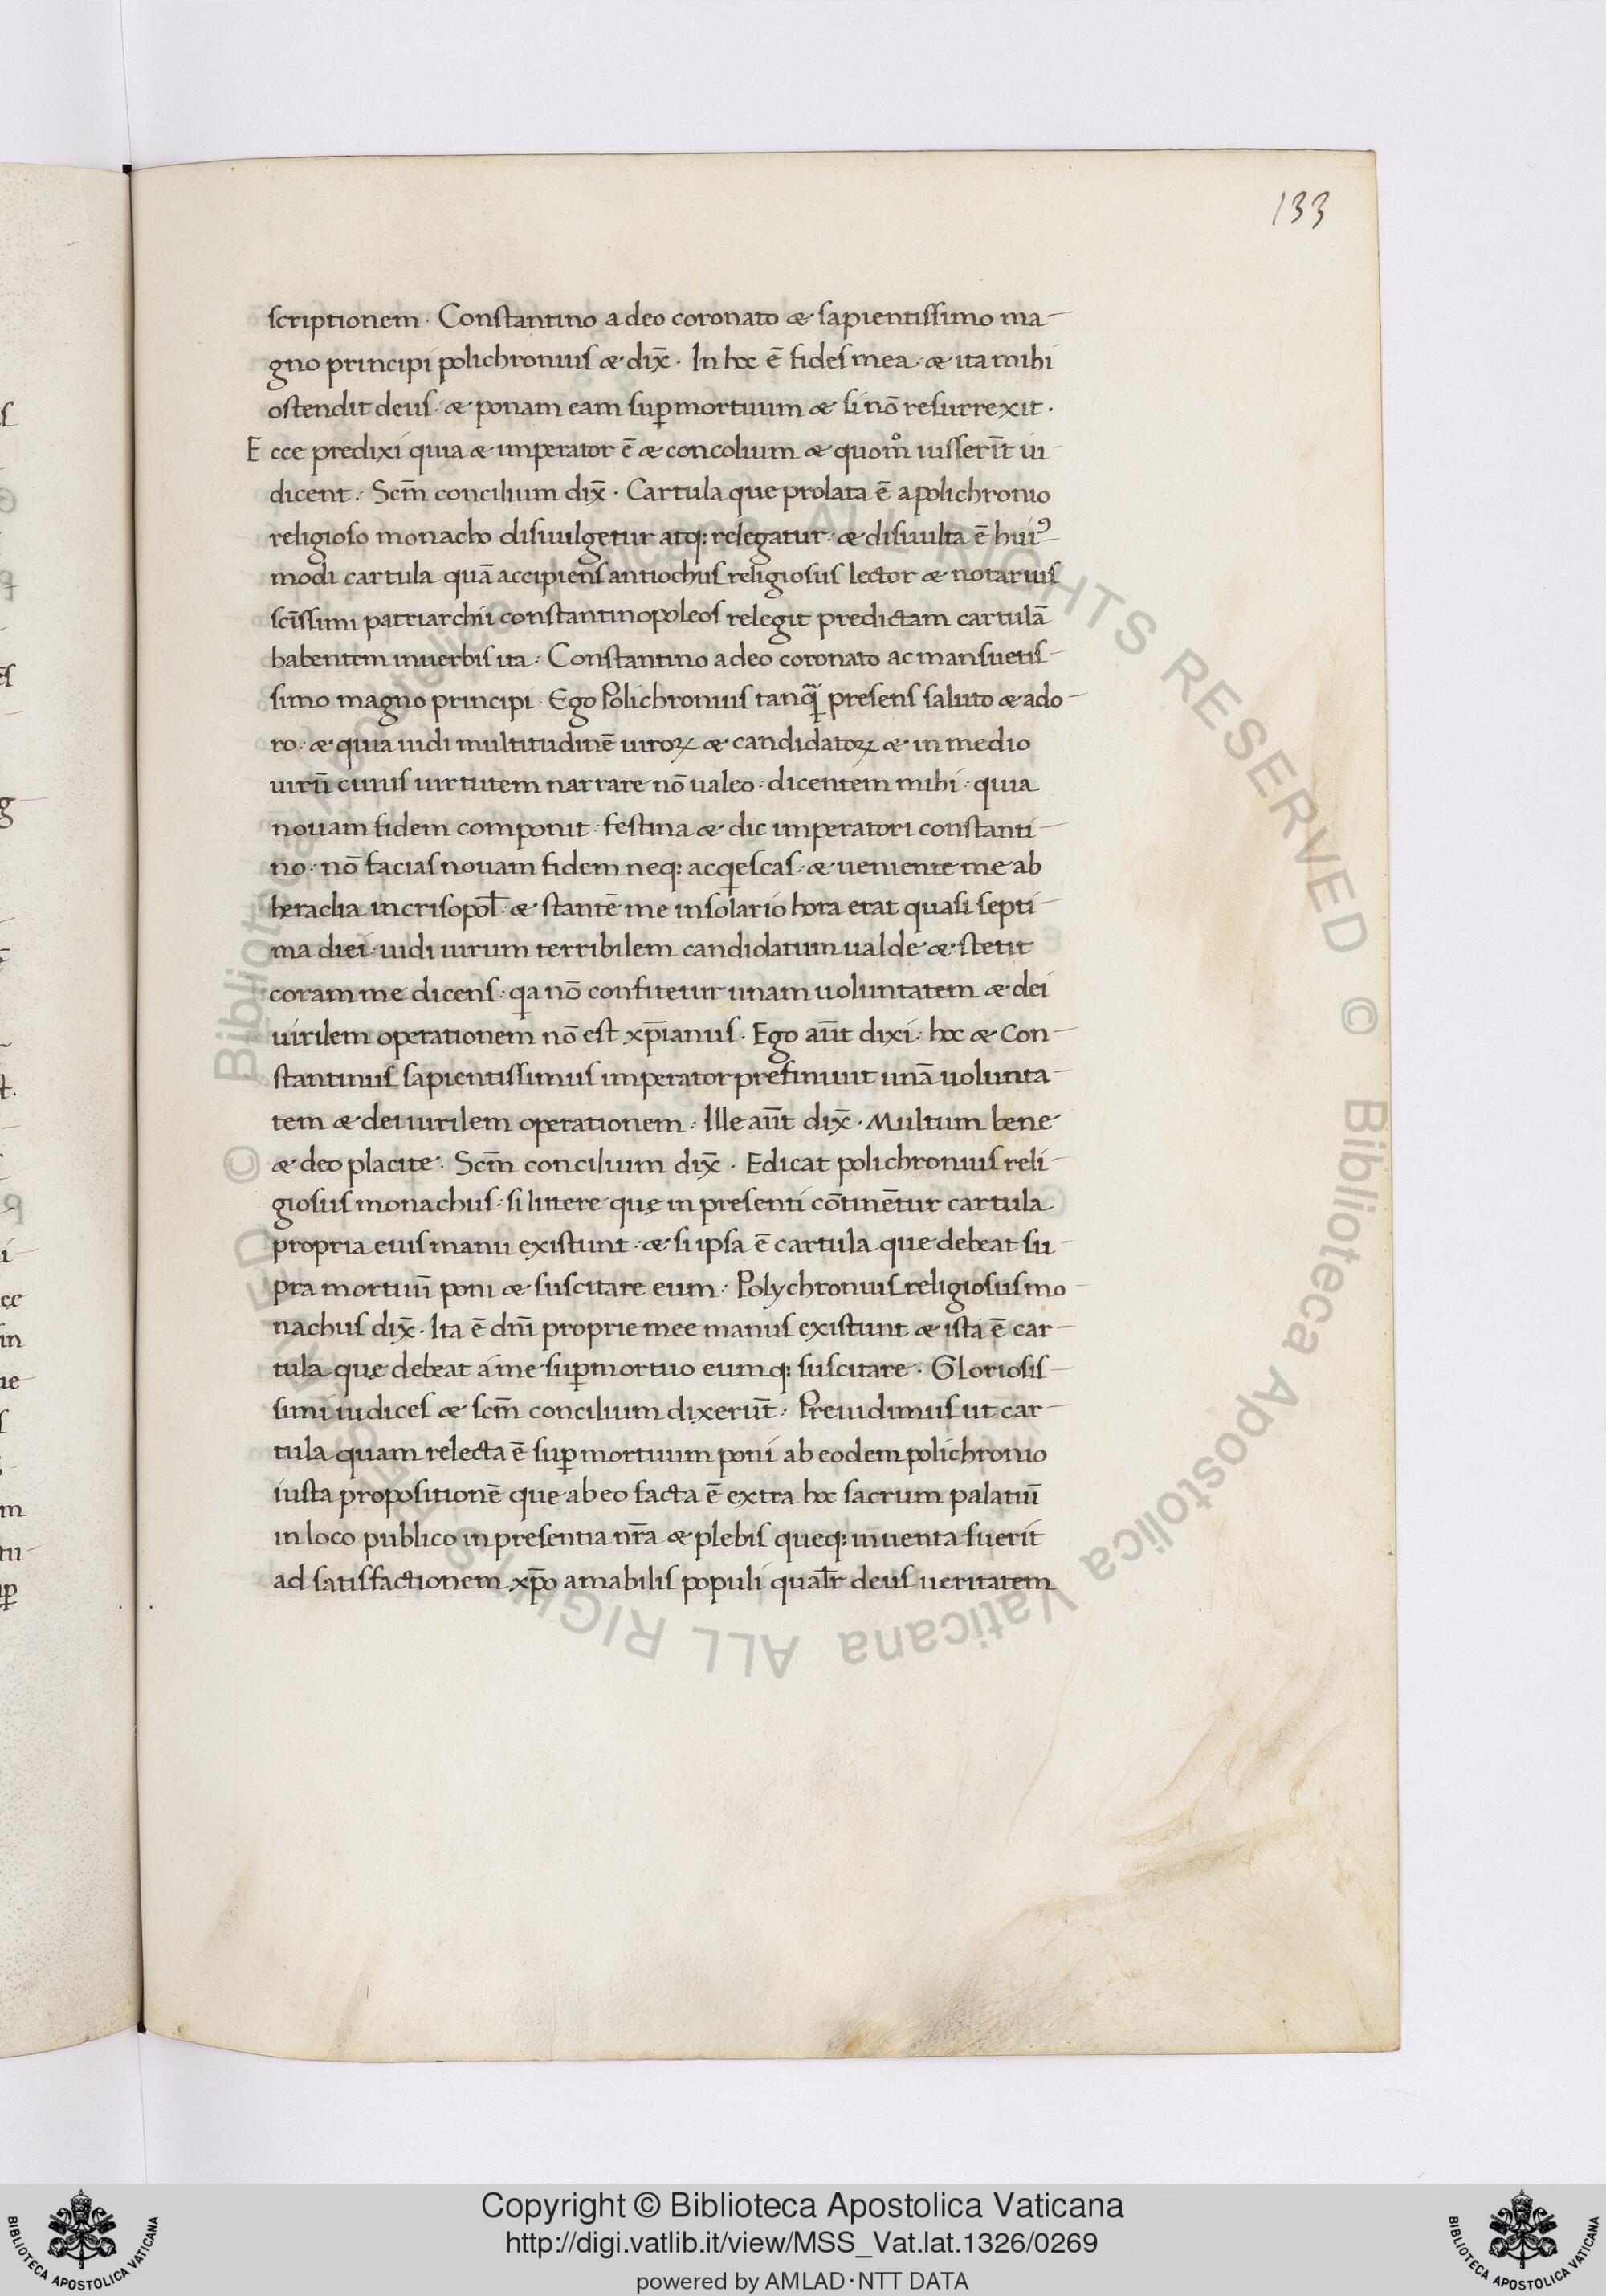 133
scriptionem · Constantino a deo coronato æ sapientissimo ma-
gno principi polichronius æ dix̄ · In hoc ē fides mea · æ ita mihi
ostendit deus · æ ponam eam sup̱ mortuum æ si nō resurrexit ·
Ecce predixi quia æ imperator ē æ concolium æ quomͦ iusserīt iu-
dicent · Scm̄ concilium dix̄ · Cartula que prolata ē a polichronio
religioso monacho disuulgetur atq: relegatur · æ disuulta ē huiꝰ-
modi cartula quā accipiens antiochus religiosus lector æ notarius
scīssimi patriarchii constantinopoleos relegit predictam cartulā
habentem in uerbis ita · Constantino a deo coronato ac mansuetis-
simo magno principi · Ego Polichronius tanqͣ presens saluto æ ado-
ro · æ quia uidi multitudinē uiroꝝ æ candidatoꝝ æ in medio
uirū cuius uirtutem narrare nō ualeo · dicentem mihi · quia
nouam fidem componit · festina æ dic imperatori constanti-
no · nō facias nouam fidem neq: acqescas · æ ueniente me ab
heraclia in crisopoł · æ stantē me in solario hora erat quasi septi-
ma diei · uidi uirum terribilem candidatum ualde æ stetit
coram me dicens · qa nō confitetur unam uoluntatem æ dei
uirilem operationem nō est xp̄ianus · Ego aūt dixi · hoc æ Con-
stantinus sapientissimus imperator prefiniuit unā uolunta-
tem æ dei uirilem operationem · Ille aūt dix̄ · Multum bene
æ deo placite · Scm̄ concilium dix̄ · Edicat polichronius reli-
giosus monachus · si littere quę in presenti cōtinētur cartula
propria eius manu existunt · æ si ipsa ē cartula que debeat su-
pra mortuū poni æ suscitare eum · Polychronius religiosus mo-
nachus dix̄ · Ita ē dnī proprie mee manus existunt æ ista ē car-
tula quę debeat a me sup̱ mortuo eumq: suscitare · Gloriosis-
simi iudices æ scm̄ concilium dixerūt · Preuidimus ut car-
tula quam relecta ē sup̱ mortuum poni ab eodem polichronio
iusta propositionē que ab eo facta ē extra hoc sacrum palatiū
in loco publico in presentia nr̄a æ plebis queq: inuenta fuerit
ad satisfactionem xp̄o amabilis populi qualr̄ deus ueritatem
© Biblioteca Apostolica Vaticana ALL RIGHTS RESERVED © Biblioteca Apostolica Vaticana ALL RIGHTS RESERVED
Copyright © Biblioteca Apostolica Vaticana
http://digi.vatlib.it/view/MSS_Vat.lat.1326/0269
powered by AMLAD·NTT DATA
BIBLIOTECA APOSTOLICA VATICANA
BIBLIOTECA APOSTOLICA VATICANA